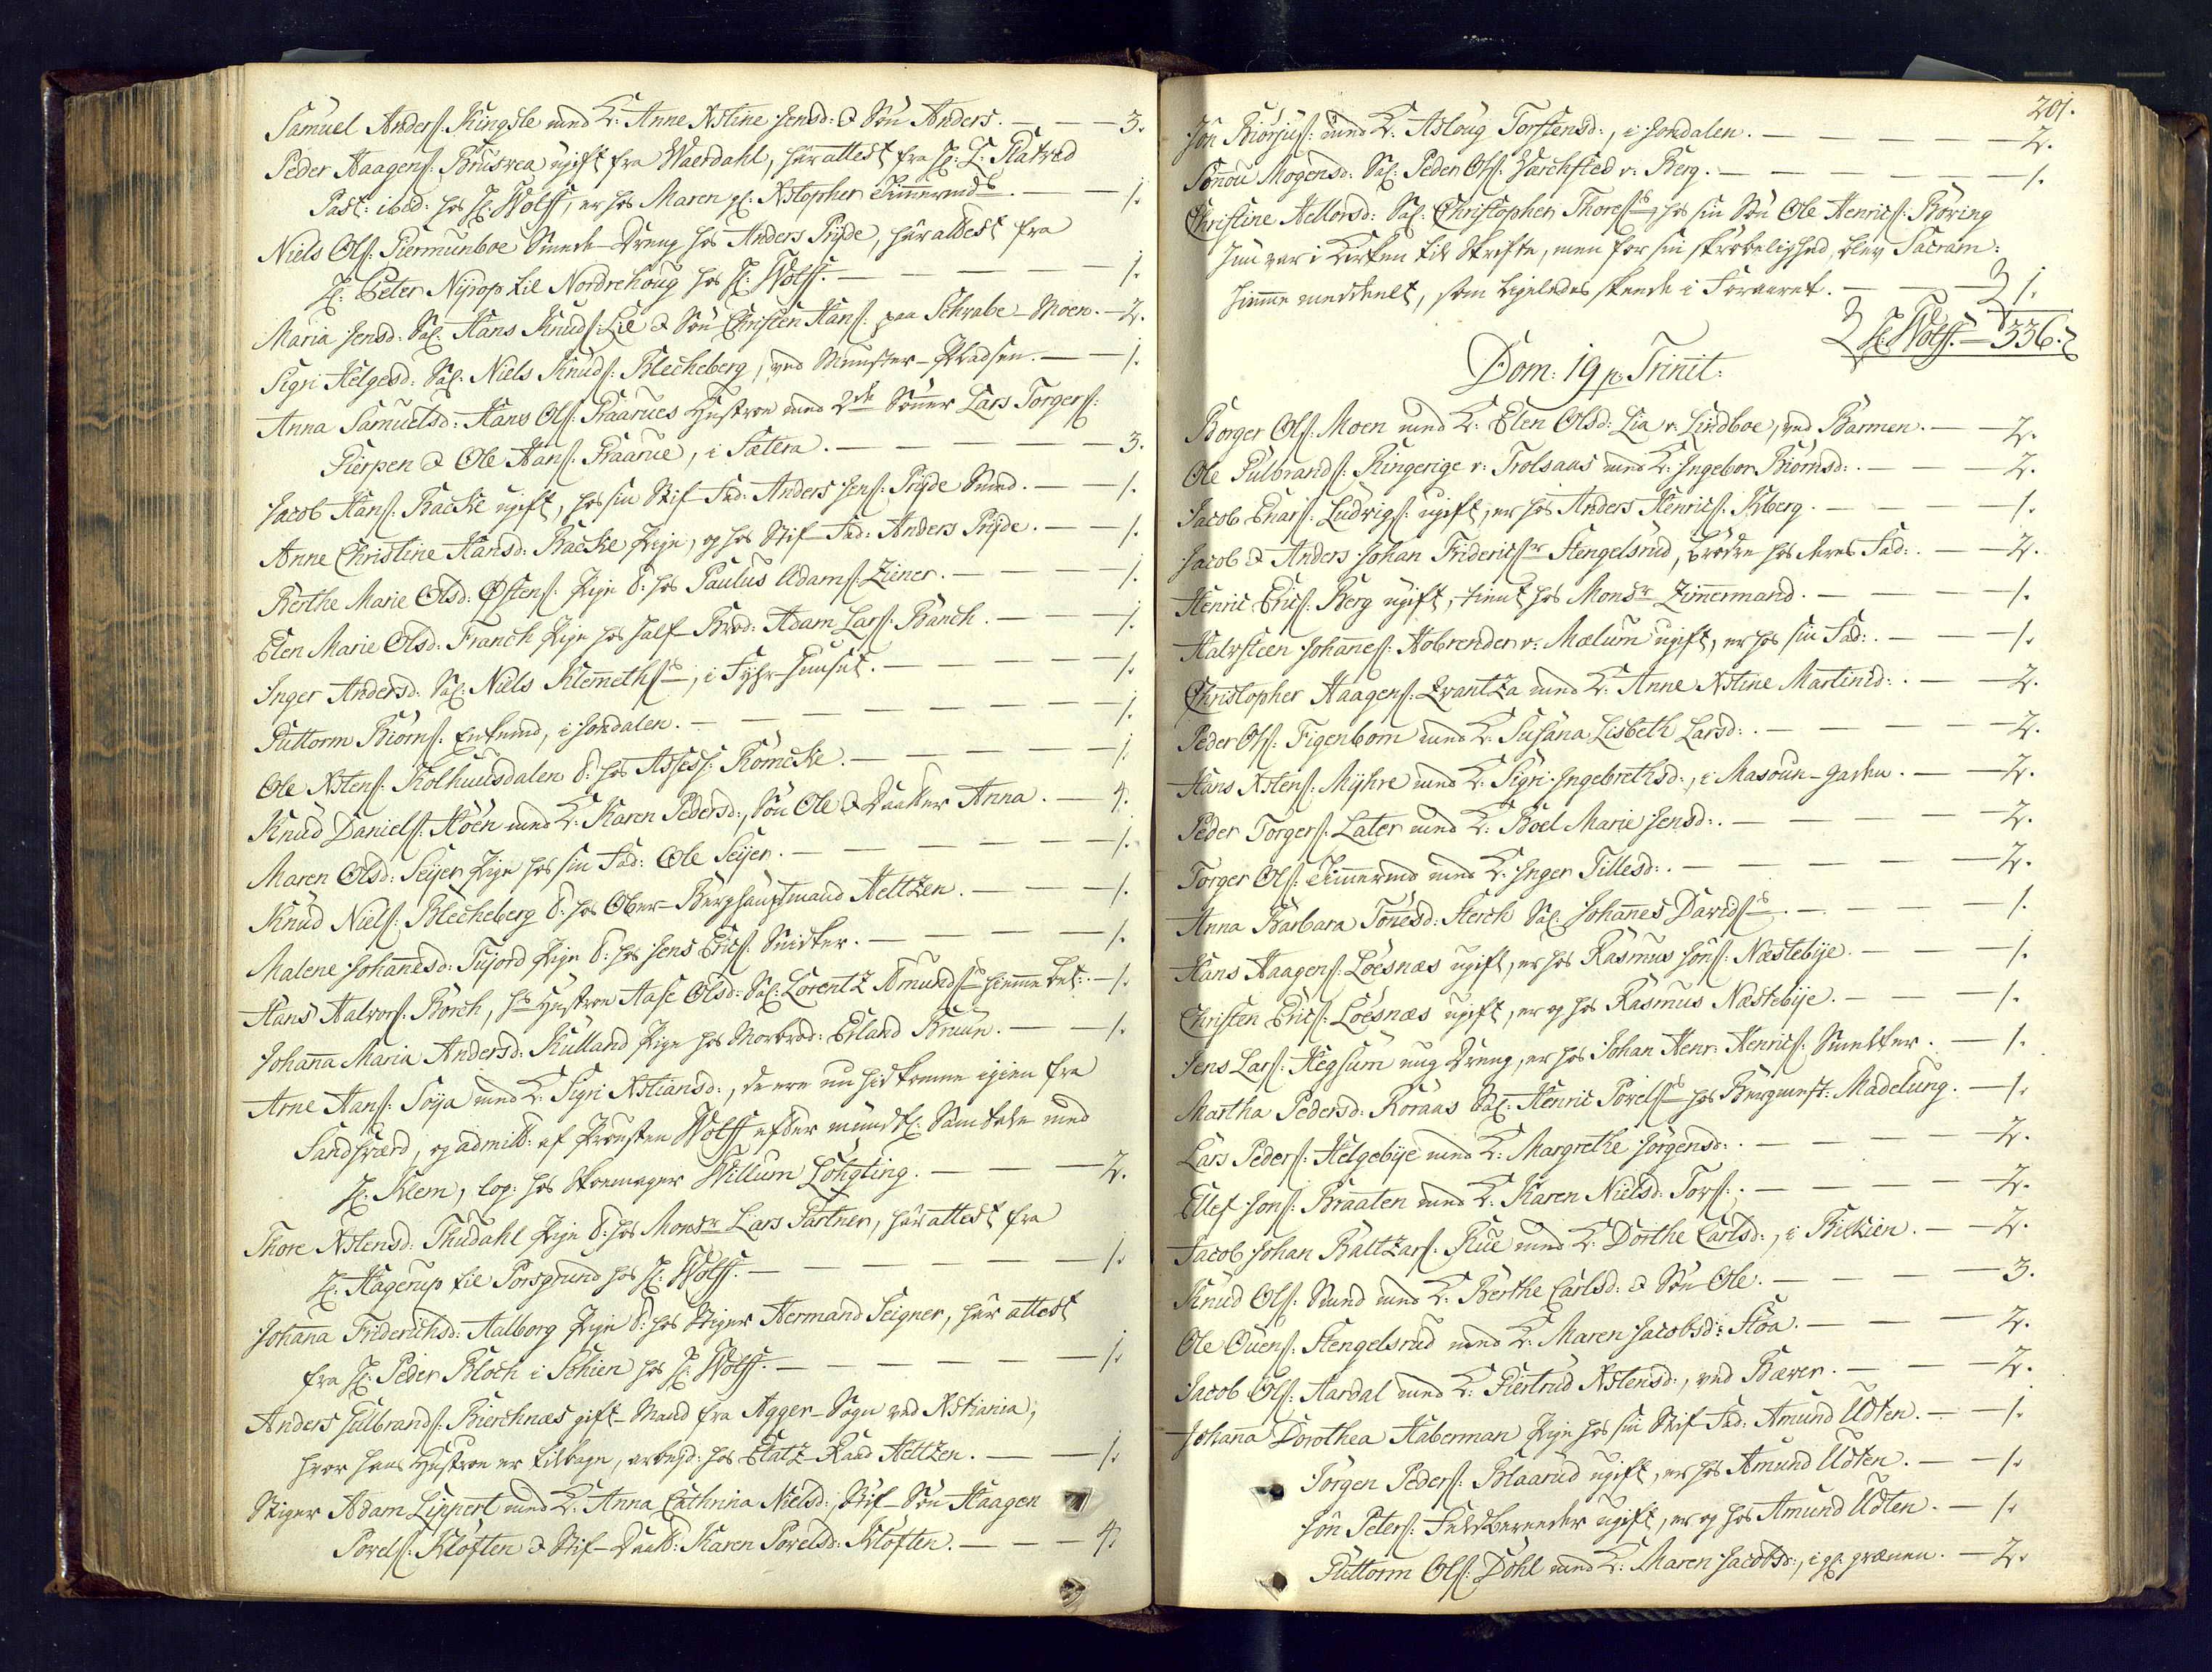 Samuel Anders: Kingsle med K: Anne Xstine Jensd: & Søn Anders. — — 3.
Peder Haagens: ugift fra Waerdahl, har attest fra Hr:
Past: ibid: hos Hr: Wolff, er hos Maren sl: Xstopher Timmermds. — — 1.
Niels Ols: Smede-Dreng hos Anders Pryde, har attest fra
Hr: Peter Nyrop til Nordrehoug hos Hr: Wolff. — — — — 1.
Maria Jensd: Sal: Hans Knuds: Lie & Søn Christen Hans: paa Schrabe-Moen. — 2.
Sigri Helgesd: Sal: Niels Knuds: Blecheberg, ved Mynster-Pladsen. — — 1.
Anna Samuelsd: Hans Ols: Praarues Hustroe med 2de Sønner Lars Torgers:
Pierpen & Ole Hans: Praarue, i Sætera. — — — — 3.
Jacob Hans: Backe ugift, hos sin Stif-Fad: Anders Jens: Pryde Smed. — — 1.
Anne Christine Hansd: Backe Pige, og hos Stif-Fad: Anders Pryde. — — 1.
Berthe Marie Olsd: Østens: Pige t: hos Paulus Adams: Ziener. — — — 1.
Elen Marie Olsd: Franck Pige hos half-Brod: Adam Lars: Banch. — — 1.
Inger Andersd: Sal: Niels Klemeths:, i Fyhr-huuset. — — — 1.
Guttorm Biørns: Enkemd, i Jondalen. — — — — — 1.
Ole Xstens: Kolhuusdalen t: hos Assess: Römcke. — — — — 1.
Knud Daniels: Höen med K: Karen Pedersd:, Søn Ole & Daatter Anna. — 4.
Maren Olsd: Seyer Pige hos sin Fad: Ole Seyer. — — — — 1.
Knud Niels: Blecheberg t: hos Ober-Berghauptmand Heltzen. — — — 1.
Malene Johannesd: Tujord Pige t: hos Jens Erics: Snidker. — — — — 1.
Hans Halvors: Borch, hs Hustroe Aase Olsd: Sal: Lorentz Amunds: hiemme bet:. — 1.
Johanna Maria Andersd: Kulland Pige hos Morbrod: Erland Bruun. — — 1.
Arne Hans: Soya med K: Sigri Xstiansd:, de ere nu hidkomne igien fra
Sandsværd, og admitt: af Prousten Wolff efter mundtl: Samtale med
Hr: Klem, log: hos Skomager Willum Löhgting. — — — 2.
Thore Xstensd: Thudahl Pige t: hos Monsr Lars Gartner, har attest fra
Hr: Hagerup til Porsgrund hos Hr: Wolff. — — — — — 1.
Johanna Friderichsd: Aalborg Pige t: hos Stiger Hermand Seigner, har attest
fra Hr: Peder Bloch i Schien hos Hr: Wolff. — — — — — 1.
Anders Gulbrands: Bierchnæs gift-Mand fra Agger-Sogn ved Xstiania,
hvor hans Hustroe er tilbage, arbeyd: hos Etatz-Raad Heltzen. — — — 1.
Stiger Adam Lippert med K: Anna Cathrina Nielsd:, Stif-Søn Haagen
Povels: Kløften & Stif-Daatt: Karen Povelsd: Kløften. — — — 4.
201.
Jon Biörjus: med K: Asloug Torstensd:, i Jondalen. — — — — 2.
Mogensd: Sal: Peder Ols: Varchsted v: Berg. — — — — 1.
Christine Hellorsd: Sal: Christopher Thores: hos sin Søn Ole Henrics: Böring
hun var i Kirken til Skrifte, men for sin skrøbelighed blev Sacram:
hiemme meddeelt, som ligeledes skeede i Foraaret. — — 1.
Hr: Wolff. — 336.
Dom: 19 p: Trinit:
Borger Ols: Moen med K: Elen Olsd: Lia v: Lindboe, ved Barmen. — — 2.
Ole Gulbrands: Ringerige v: Trolsaas med K: Ingebor Biörnsd:. — — 2.
Jacob Enars: Ludvigs: ugift, er hos Anders Henrics: Kberg. — — 1.
Jacob & Anders Johan Fridericssr Hengelsrud, brødre hos deres Fad:. — 2.
Henric Erics: Berg ugift, tient hos Monsr Zimmermand. — — — 1.
Halvsteen Johannes: Hobrender v: Mælum ugift, er hos sin Fad:. — — 1.
Christopher Haagens: Qvantza med K: Anne Xstine Martinid:. — — 2.
Peder Ols: Figenbom med K: Susana Lisbeth Larsd:. — — — — 2.
Hans Xstens: Myhre med K: Sigri Ingebrethsd:, i Masoun-gaden. — — 2.
Peder Torgers: Later med K: Boel Marie Jensd:. — — — — 2.
Torger Ols: Timmermd med K: Inger Tillesd:. — — — — 2.
Anna Barbara Tönesd: Sterch Sal: Johannes Davids:. — — — — 1.
Hans Haagens: Löesnæs ugift, er hos Rasmus Jons: Næstebye. — — — 1.
Christen Erics: Löesnæs ugift, er og hos Rasmus Næstebye. — — — 1.
Jens Lars: Hegsum ung Dreng, er hos Johan Henr: Henrics: Smelter. — 1.
Martha Pedersd: Röraas Sal: Henric Povels: hos Bergmest: Madelung. — 1.
Lars Peders: Helgebye med K: Margrethe Jörgensd:. — — — — 2.
Ellef Jons: Braaten med K: Karen Nielsd: Tors:. — — — — 2.
Jacob Johan Baltzars: Rue med K: Dorthe Carlsd:, i Bikkien. — — 2.
Knud Ols: Smed med K: Berthe Carlsd: & Søn Ole. — — — — 3.
Ole Ouens: Hengelsrud med K: Maren Jacobsd: Höa. — — — 2.
Jacob Ols: Aardal med K: Giertrud Xstensd:, ved Bæver. — — — 2.
Johanna Dorothea Haberman Pige hos sin Stif-Fad: Amund Udten. — — 1.
Jörgen Peders: Blaarud ugift, er hos Amund Udten. — — 1.
Jön Peters: Feldbereder ugift, er og hos Amund Udten. — 1.
Guttorm Ols: Döhl med K: Maren Jacobsd:, i gl: grænen. — 2.